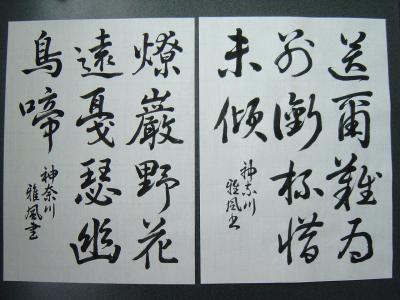 送爾難為
別銜杯惜
未傾
神奈川
雅風書
燎巌野花
遠戞瑟幽
鳥啼
神奈川
雅風書